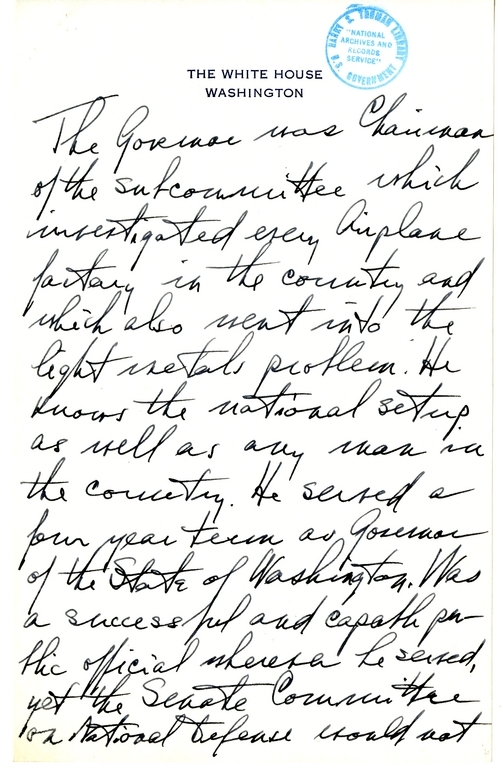 HARRY S. TRUMAN LIBRARY
"NATIONAL
ARCHIVES AND
RECORDS
SERVICE"
U.S. GOVERNMENT
THE WHITE HOUSE
WASHINGTON
The Governor was Chairman
of the subcommittee which
investigated every Airplane
factory in the country and
which also went into the
light metals problem. He
knows the national setup
as well as any man in
the country. He served a
four year term as Governor
of the State of Washington. Was
a successful and capable pu-
blic official wherever he served,
yet the Senate Committee
on National Defense would not